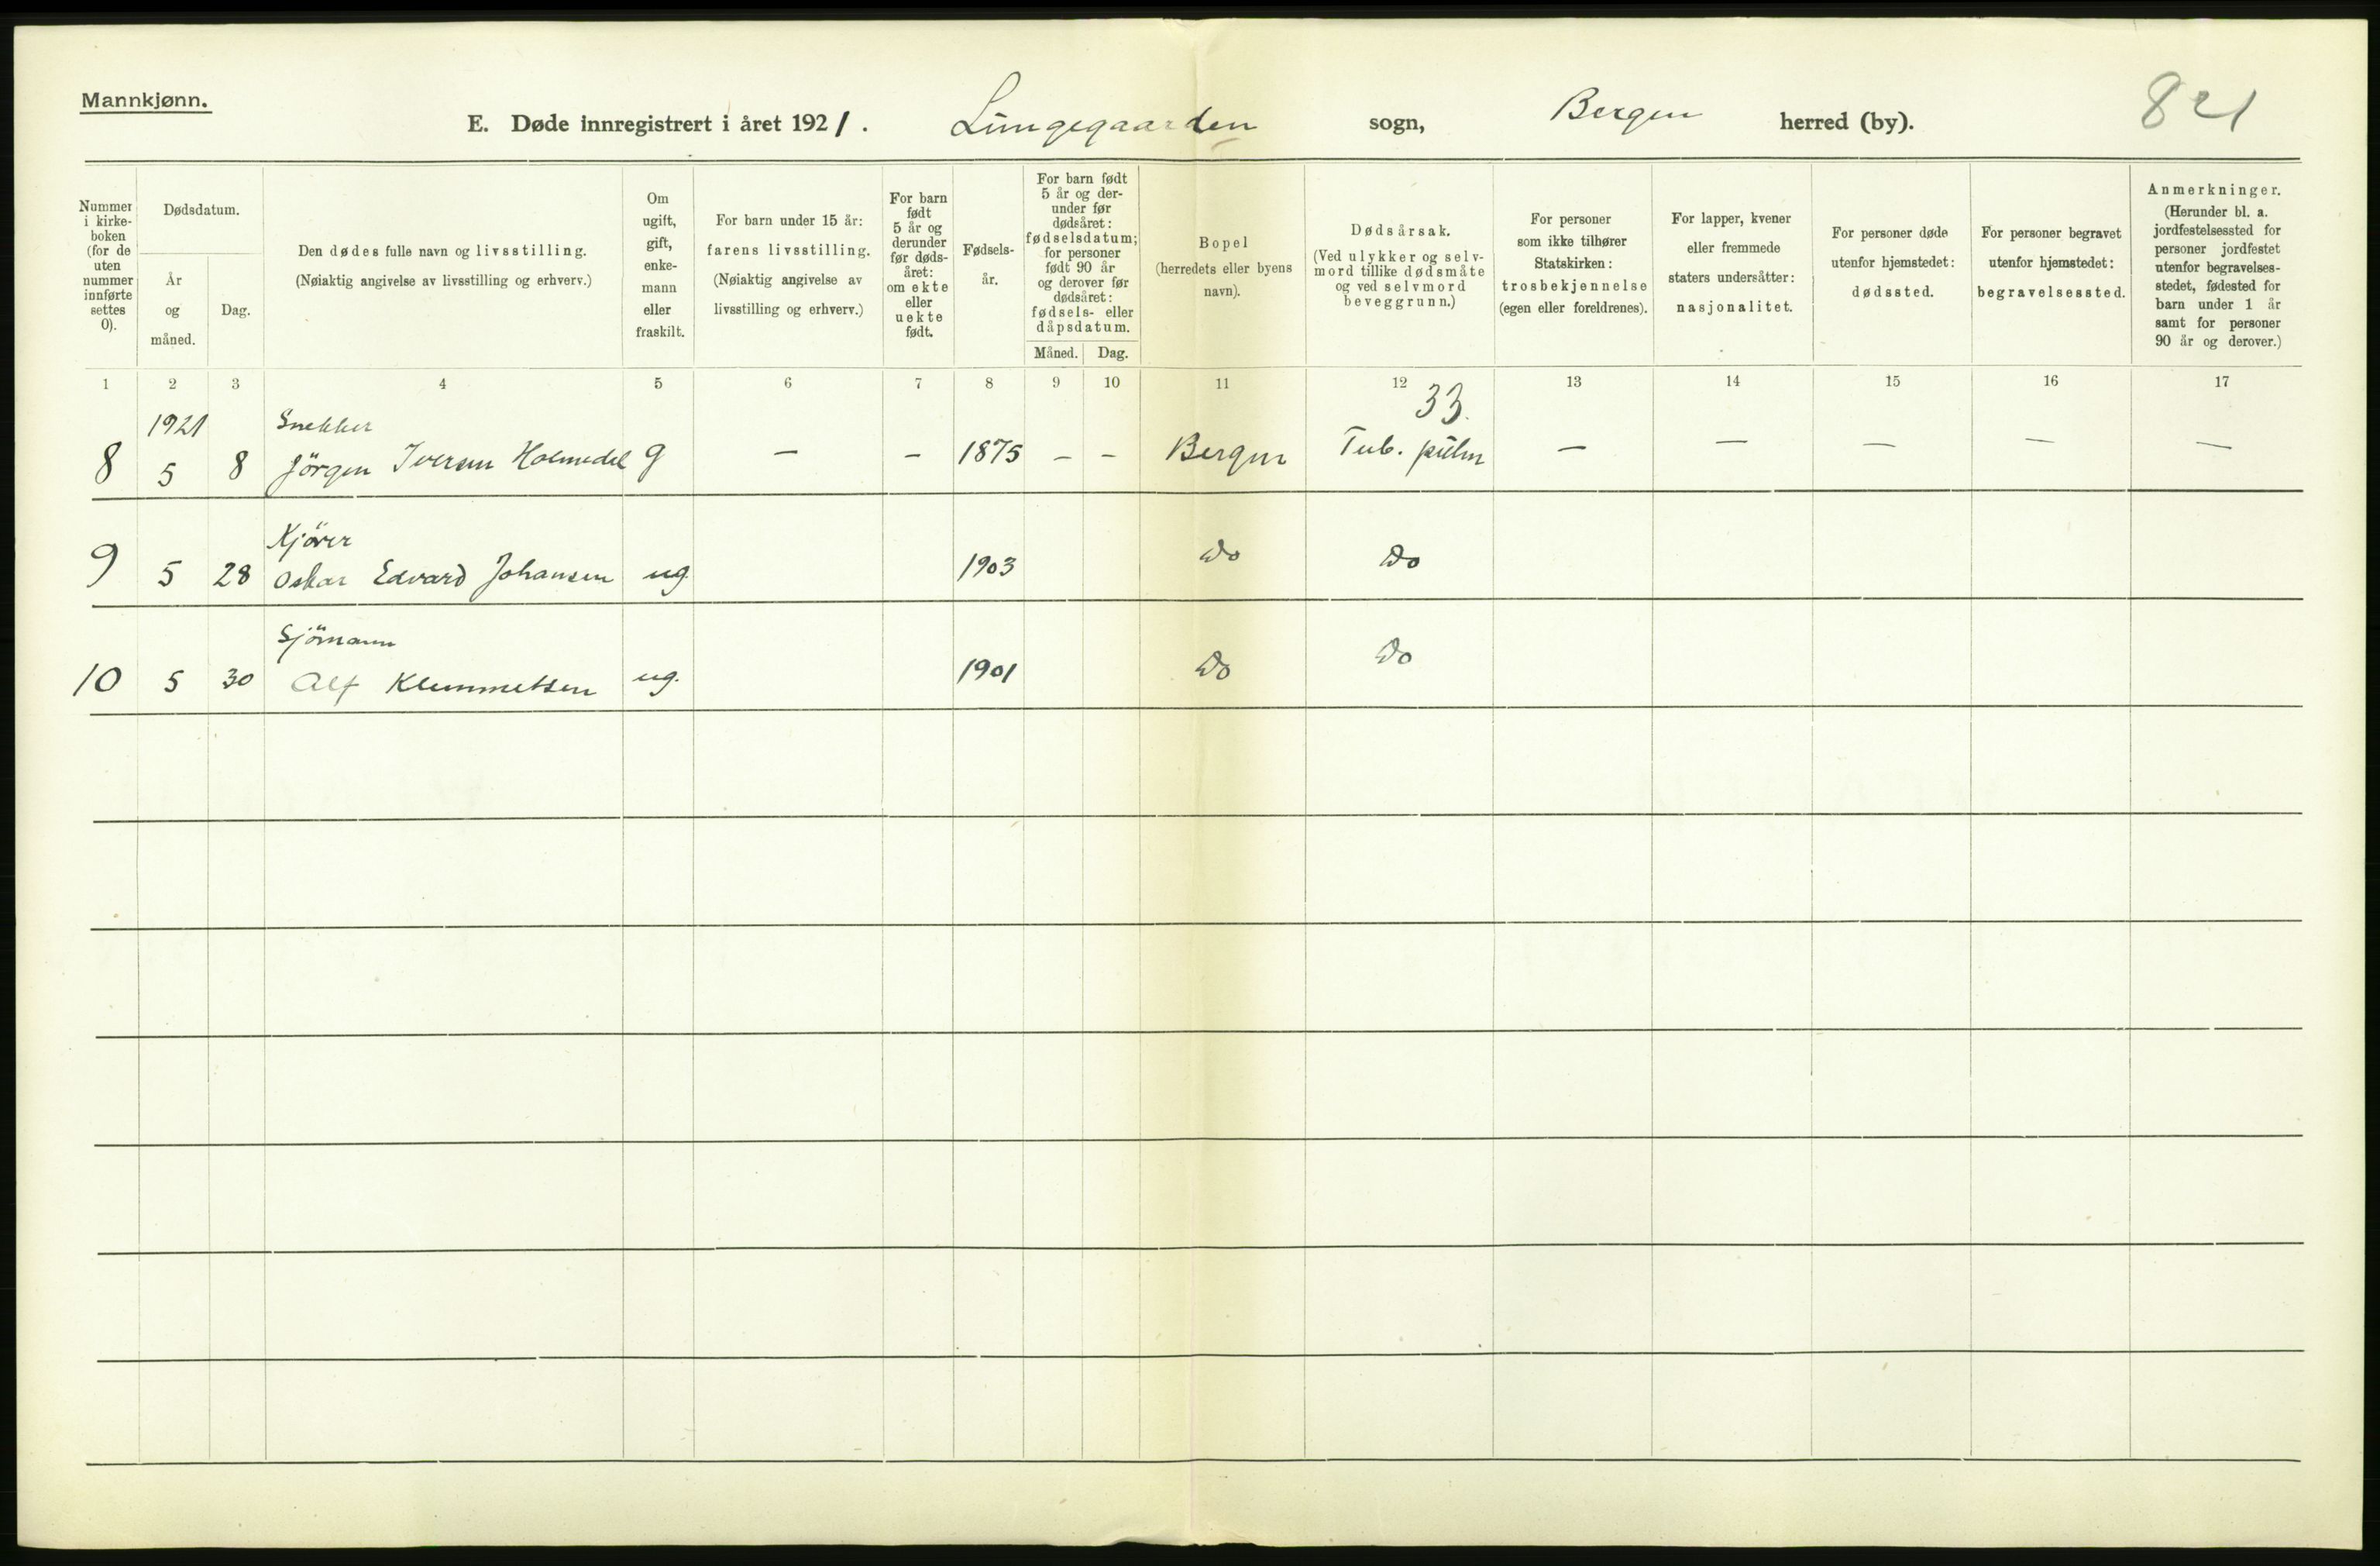 Mannkjønn.
E. Døde innregistrert i året 1921. Lungegaarden sogn, Bergen herred (by). 821
Nummer i kirke- boken (for de uten nummer innførte settes 0).
Dødsdatum.
År og måned.
Dag.
Den dødes fulle navn og livsstilling.
(Nøiaktig angivelse av livsstilling og erhverv.)
Om ugift, gift, enke- mann eller fraskilt.
For barn under 15 år:
farens livsstilling.
(Nøiaktig angivelse av
livsstilling og erhverv.)
For barn født 5 år og derunder før døds- året: om ekte eller uekte født.
Fødsels- år.
For barn født 5 år og der- under før dødsåret: fødselsdatum; for personer født 90 år og derover før dødsåret: fødsels- eller dåpsdatum.
Måned. Dag.
Bopel
(herredets eller byens
navn).
Dødsårsak.
(Ved ulykker og selv-
mord tillike dødsmåte
og ved selvmord
beveggrunn.)
For personer
som ikke tilhører
Statskirken:
trosbekjennelse
(egen eller foreldrenes).
For lapper, kvener
eller fremmede
staters undersåtter:
nasjonalitet.
For personer døde
utenfor hjemstedet:
dødssted.
For personer begravet
utenfor hjemstedet:
begravelsessted.
Anmerkninger.
(Herunder bl. a.
jordfestelsessted for
personer jordfestet
utenfor begravelses-
stedet, fødested for
barn under 1 år
samt for personer
90 år og derover.)
1 2 3 4 5 6 7 8 9 10 11 12 13 14 15 16 17
1921 Snekker 33.
8 5 8 Jörgen Iversen Holmedal g — – 1875 – – Bergen Tub. pulm — — — — —
Kjörer
9 5 28 Oskar Edvard Johansen ug. 1903 Do Do
Sjömann
10 5 30 Alf Klemmetsen ug. 1901 Do Do